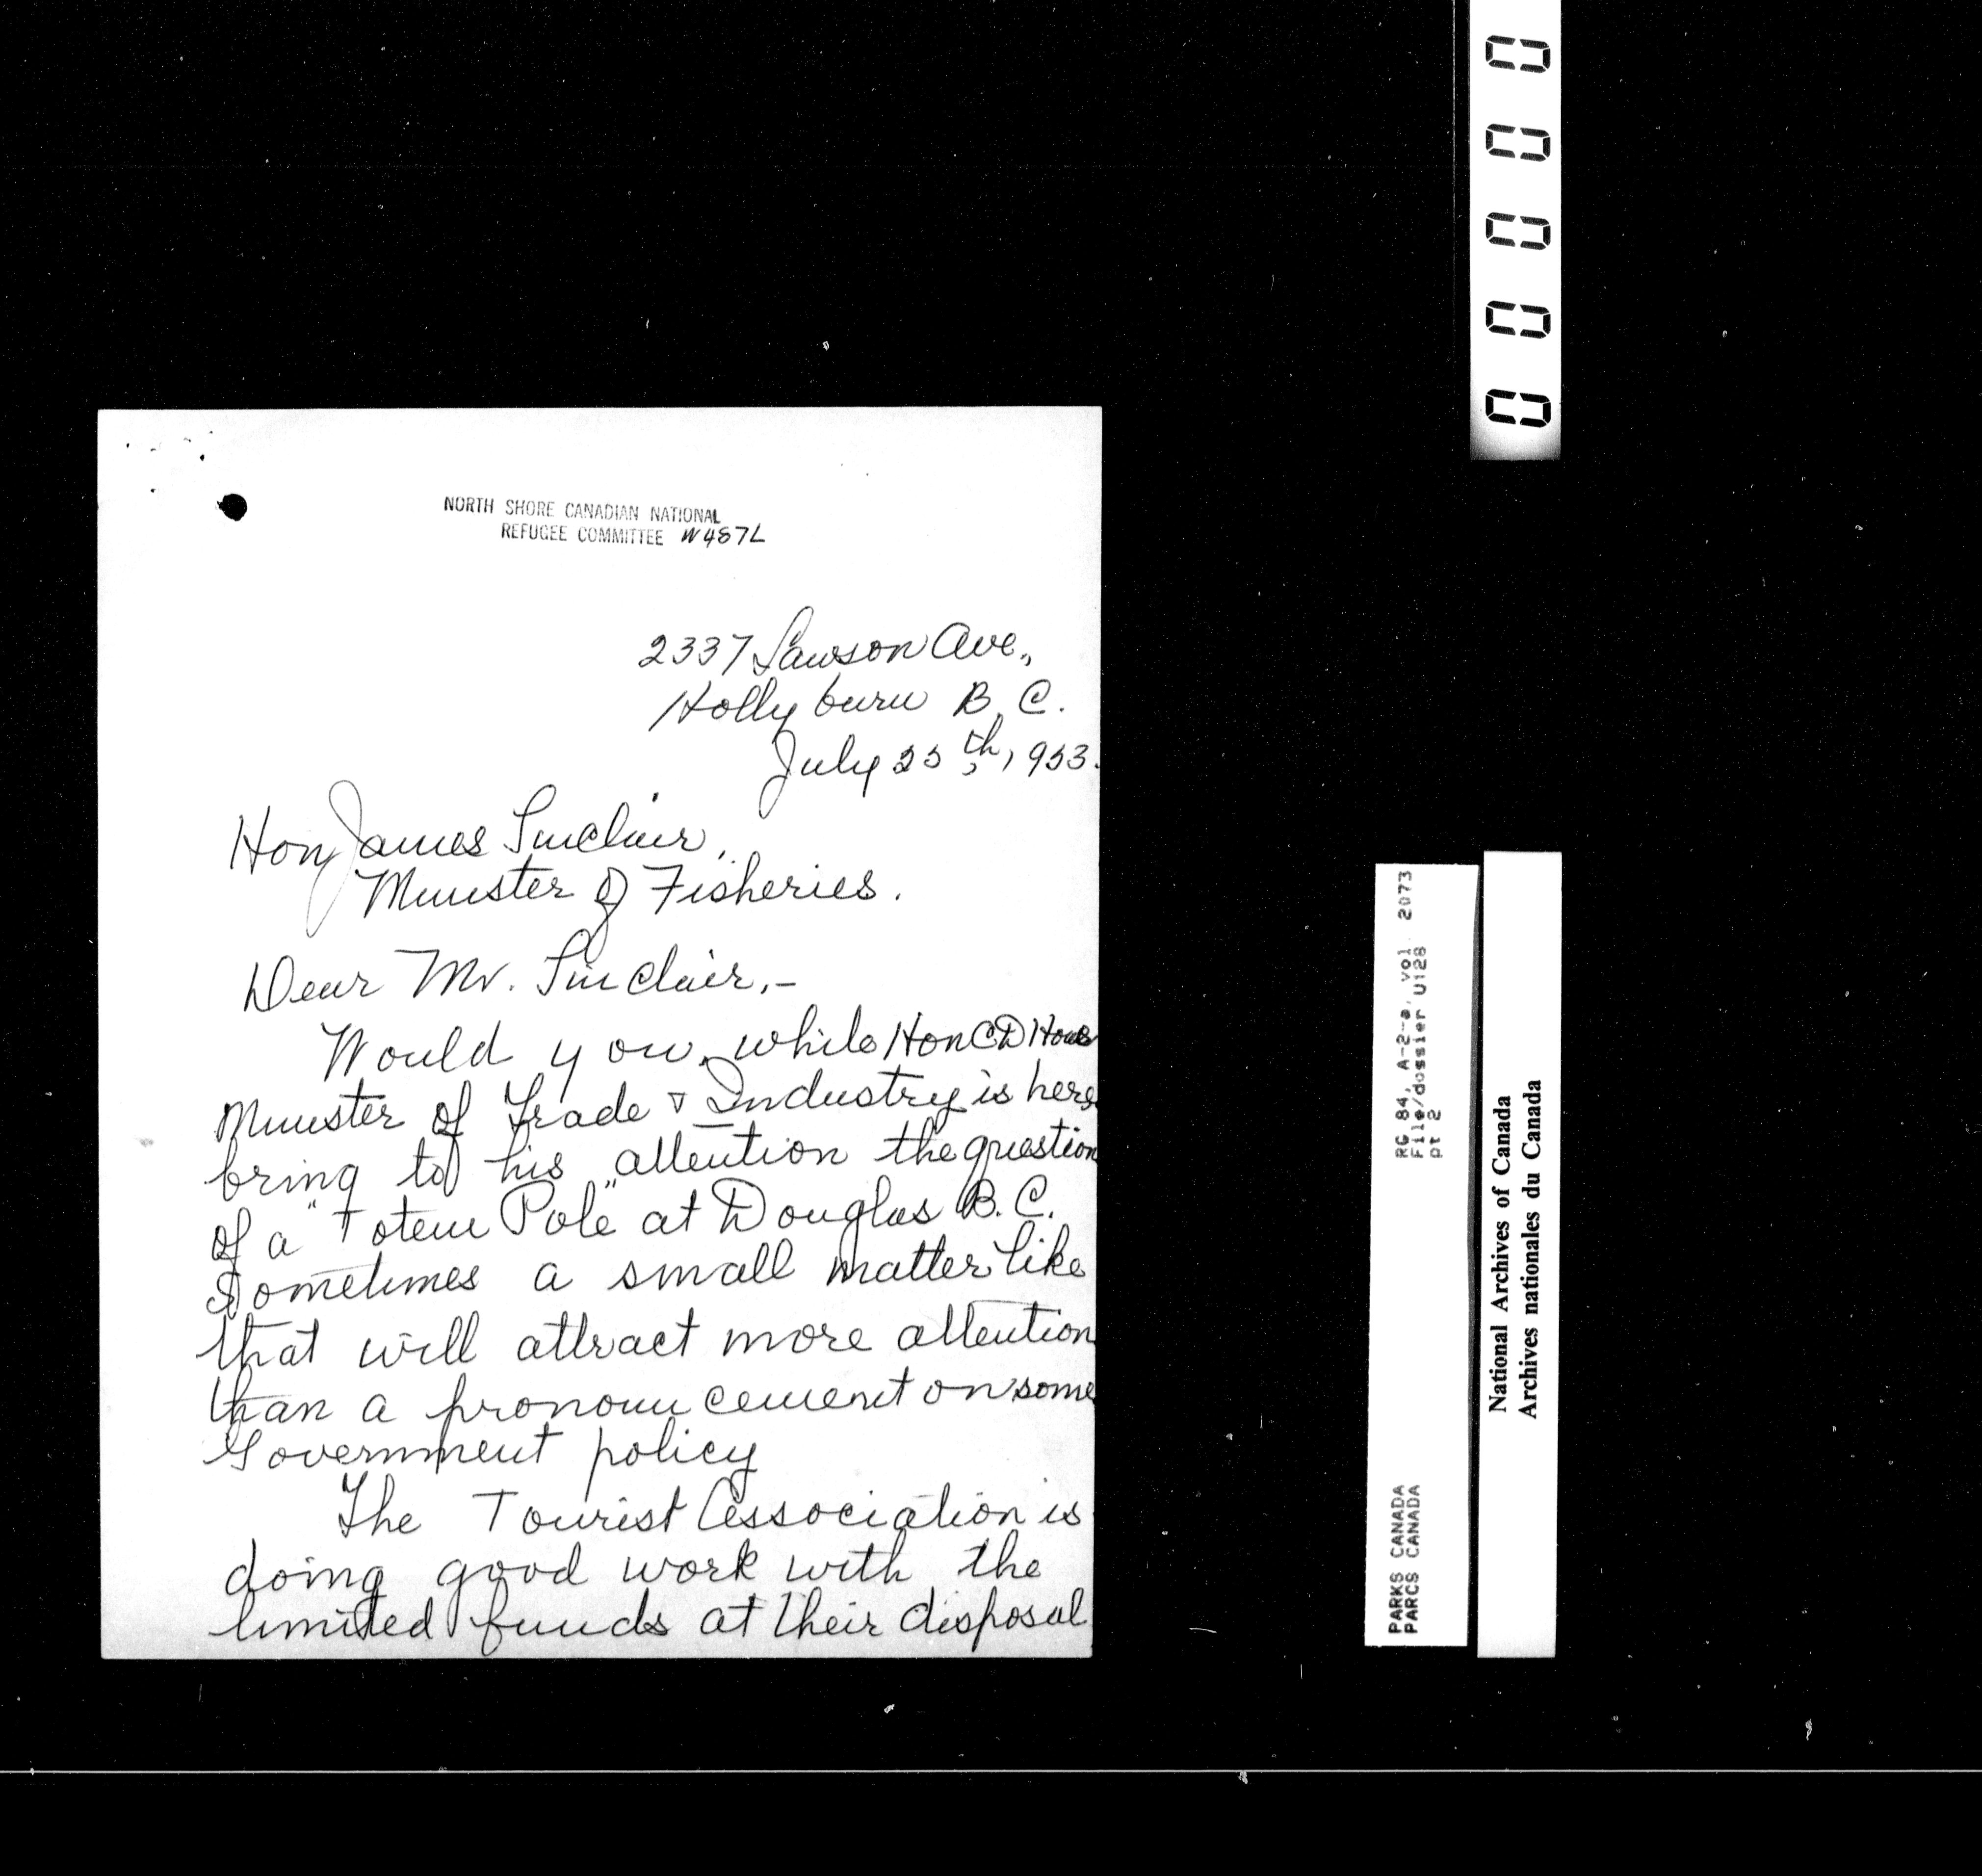 NORTH SHORE CANADIAN NATIONAL
REFUGEE COMMITTEE W487L
2337 Lawson Ave.,
Hollyburn B.C.
July 25th, 1953.
Hon James Sinclair,
Minister of Fisheries.
Dear Mr. Sinclair,-
Would you, while Hon C D Howe
Minister of Trade & Industry is here
bring to his attention the question
of a "Totem Pole" at Douglas B.C.
Sometimes a small matter like
that will attract more attention
than a pronouncement on some
Government policy
The Tourist Association is
doing good work with the
limited funds at their disposal
0 0 0 0 0
RG 84, A-2-a, vol. 2073
File/dossier U128
pt 2
PARKS CANADA
PARCS CANADA
National Archives of Canada
Archives nationales du Canada